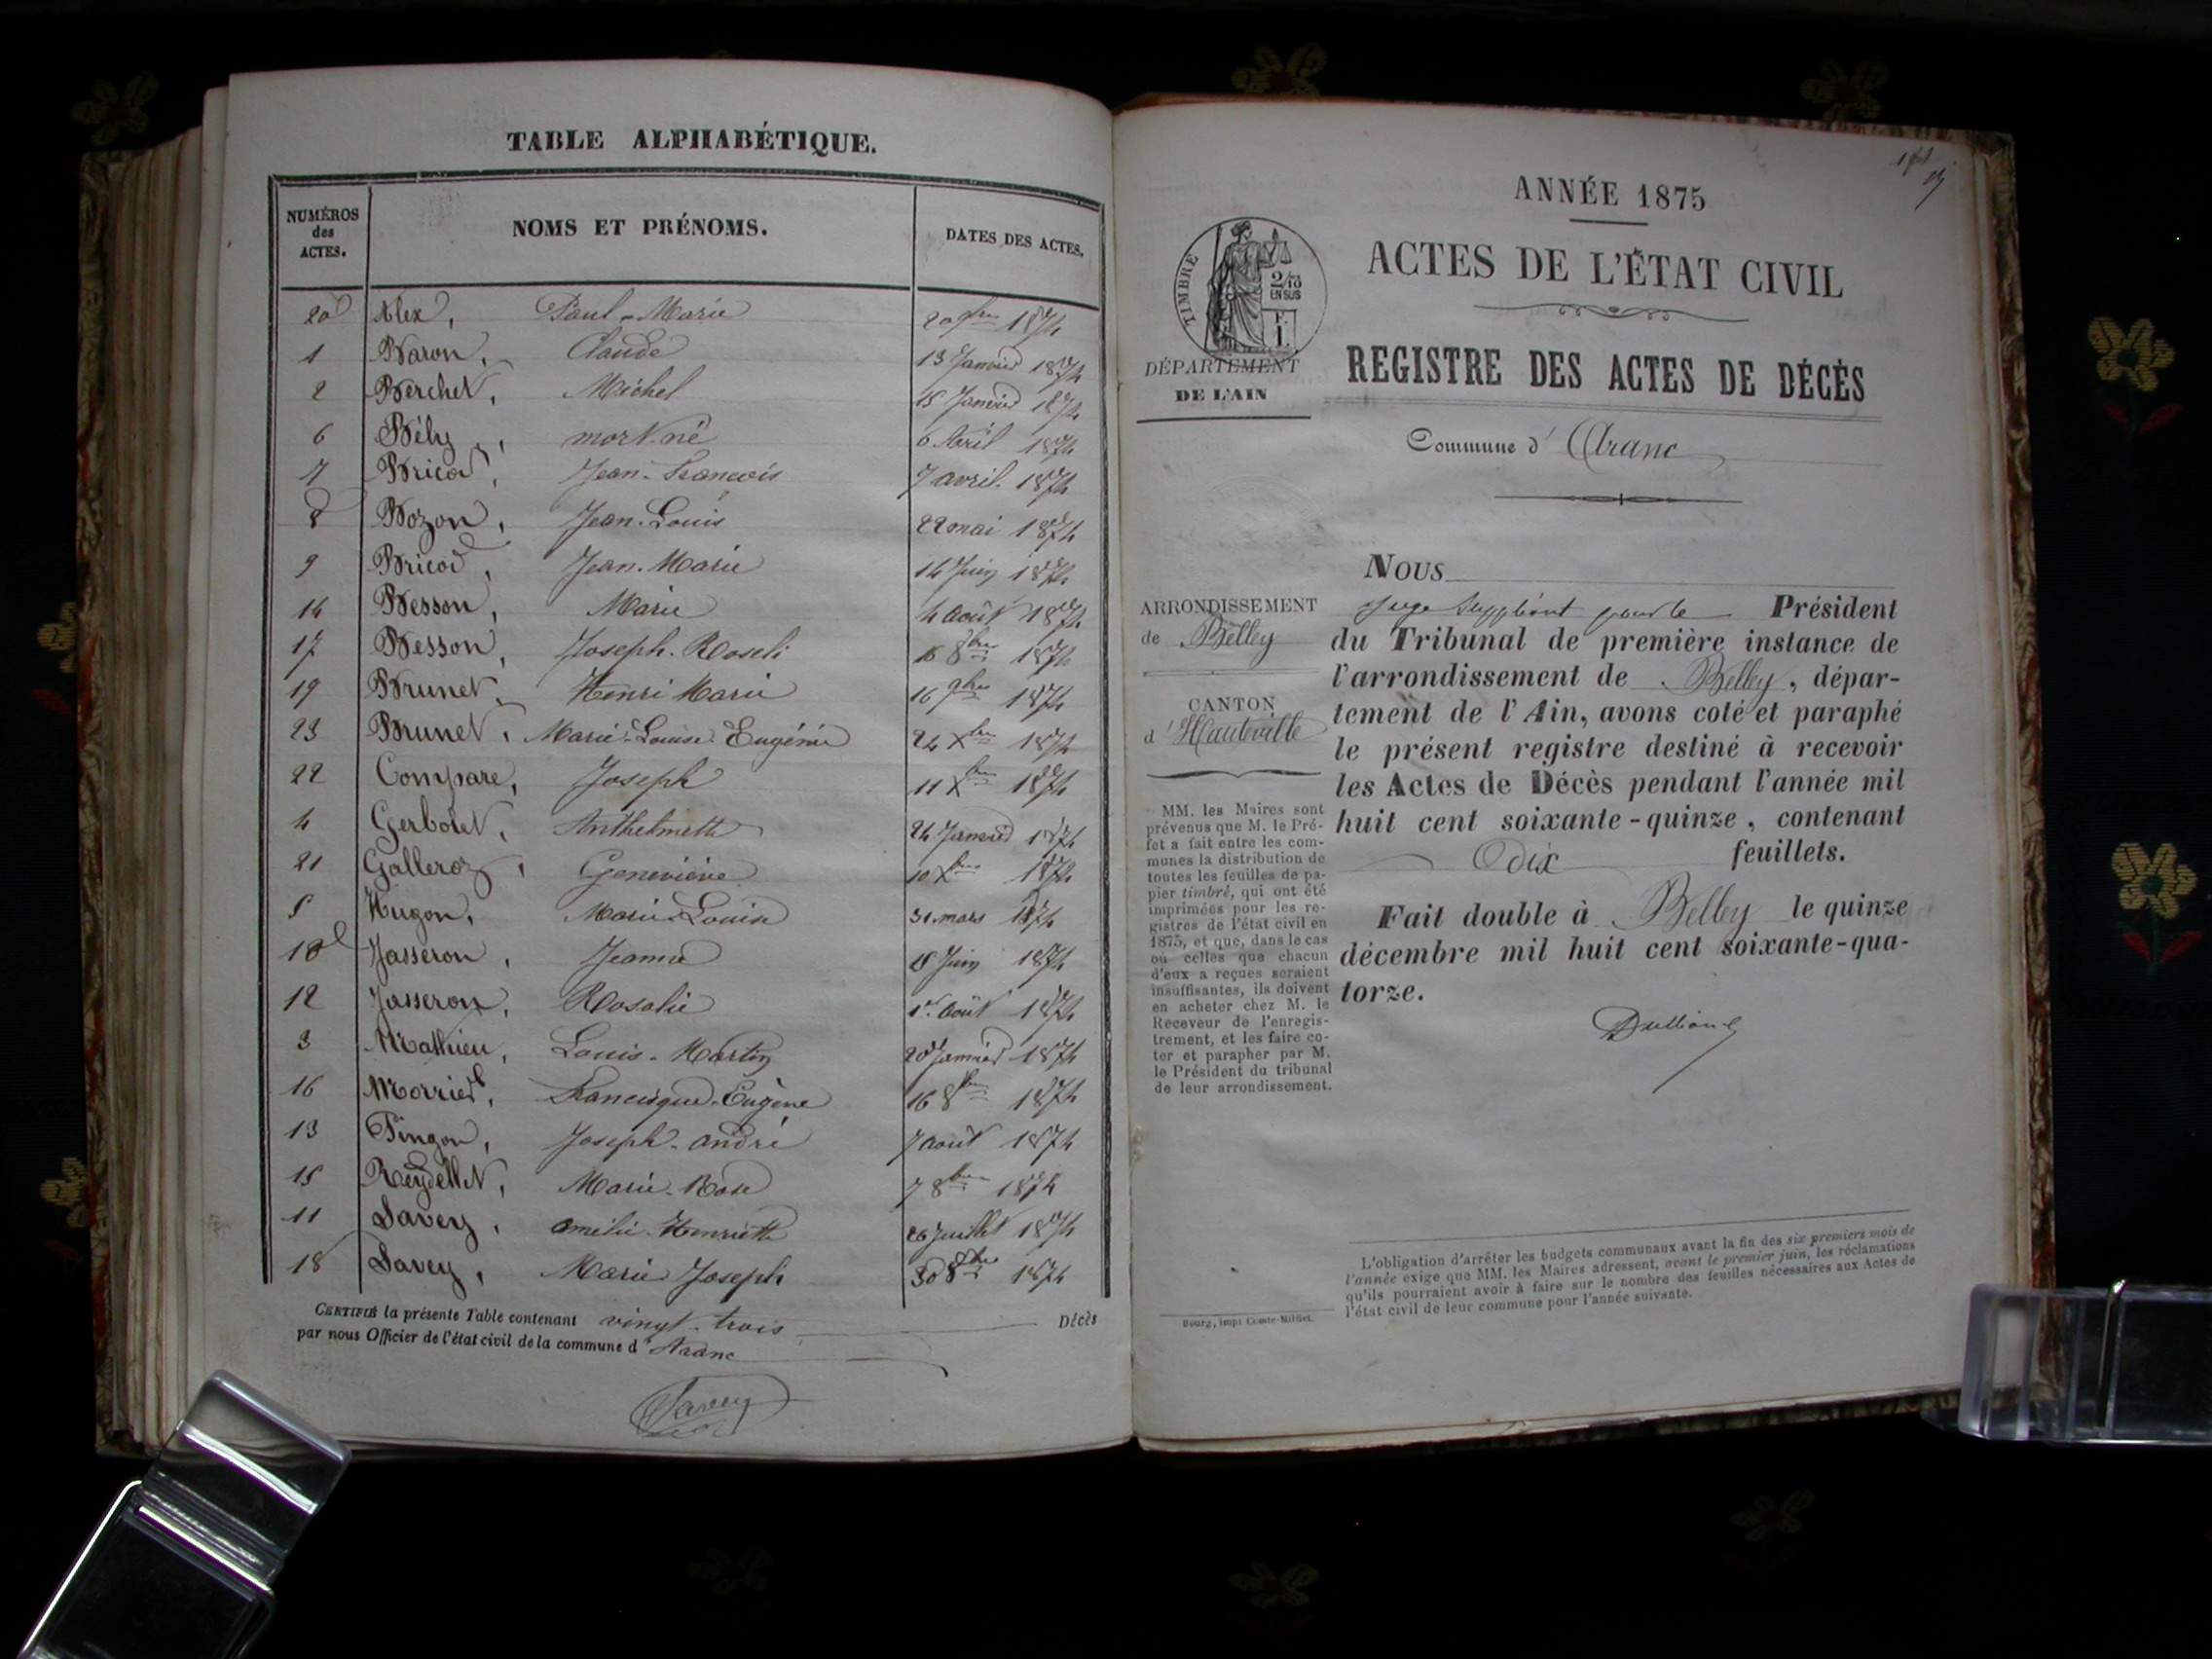 TABLE ALPHABÉTIQUE.
NUMÉROS des ACTES. NOMS ET PRÉNOMS. DATES DES ACTES.
20 Alex, Paul-Marie 20 9bre 1874
1 Baron, Claude 13 Janvier 1874
2 Berchet, Michel 15 Janvier 1874
6 Bély, mort-né 6 Avril 1874
7 Bricod, Jean-Francois 7 avril 1874
8 Bozon, Jean-Louis 22 mai 1874
9 Bricod, Jean-Marie 14 Juin 1874
14 Besson, Marie 4 août 1874
17 Besson, Joseph-Roseli 18 8bre 1874
19 Brunet, Henri Marie 16 9bre 1874
23 Brunet, Marie-Louise Eugénie 24 Xbre 1874
22 Compare, Joseph 11 Xbre 1874
4 Gerbolet, Anthelmette 24 Janvier 1874
21 Galleroz, Geneviève 10 Xbre 1874
5 Hugon, Marie-Louise 31 mars 1874
10 Jasseron, Jeanne 18 Juin 1874
12 Jasseron, Rosalie 1er août 1874
3 Mathieu, Louis-Martin 20 Janvier 1874
16 Morrier, Francisque-Eugène 16 8bre 1874
13 Pingon, Joseph-andré 7 août 1874
15 Reydellet, Marie-Rose 7 8bre 1874
11 Savey, amélie-Henriette 26 Juillet 1874
18 Savey, Marie Joseph 30 8bre 1874
CERTIFIÉ la présente Table contenant vingt-trois Décès
par nous Officier de l'état civil de la commune d'Aranc
Savey
ANNÉE 1875
ACTES DE L'ÉTAT CIVIL
TIMBRE
2/10
EN SUS
DÉPARTEMENT
DE L'AIN
REGISTRE DES ACTES DE DÉCÈS
Commune d'Aranc
ARRONDISSEMENT
de Belley
CANTON
d'Hauteville
MM. les Maires sont
prévenus que M. le Pré-
fet a fait entre les com-
munes la distribution de
toutes les feuilles de pa-
pier timbré, qui ont été
imprimées pour les re-
gistres de l'état civil en
1875, et que, dans le cas
où celles que chacun
d'eux a reçues seraient
insuffisantes, ils doivent
en acheter chez M. le
Receveur de l'enregis-
trement, et les faire co-
ter et parapher par M.
le Président du tribunal
de leur arrondissement.
NOUS
Juge Suppléant pour le Président
du Tribunal de première instance de
l'arrondissement de Belley, dépar-
tement de l'Ain, avons coté et paraphé
le présent registre destiné à recevoir
les Actes de Décès pendant l'année mil
huit cent soixante-quinze, contenant
dix feuillets.
Fait double à Belley le quinze
décembre mil huit cent soixante-qua-
torze.
L'obligation d'arrêter les budgets communaux avant la fin des six premiers mois de
l'année exige que MM. les Maires adressent, avant le premier juin, les réclamations
qu'ils pourraient avoir à faire sur le nombre des feuilles nécessaires aux Actes de
l'état civil de leur commune pour l'année suivante.
Bourg, imp. Comte-Milliet.